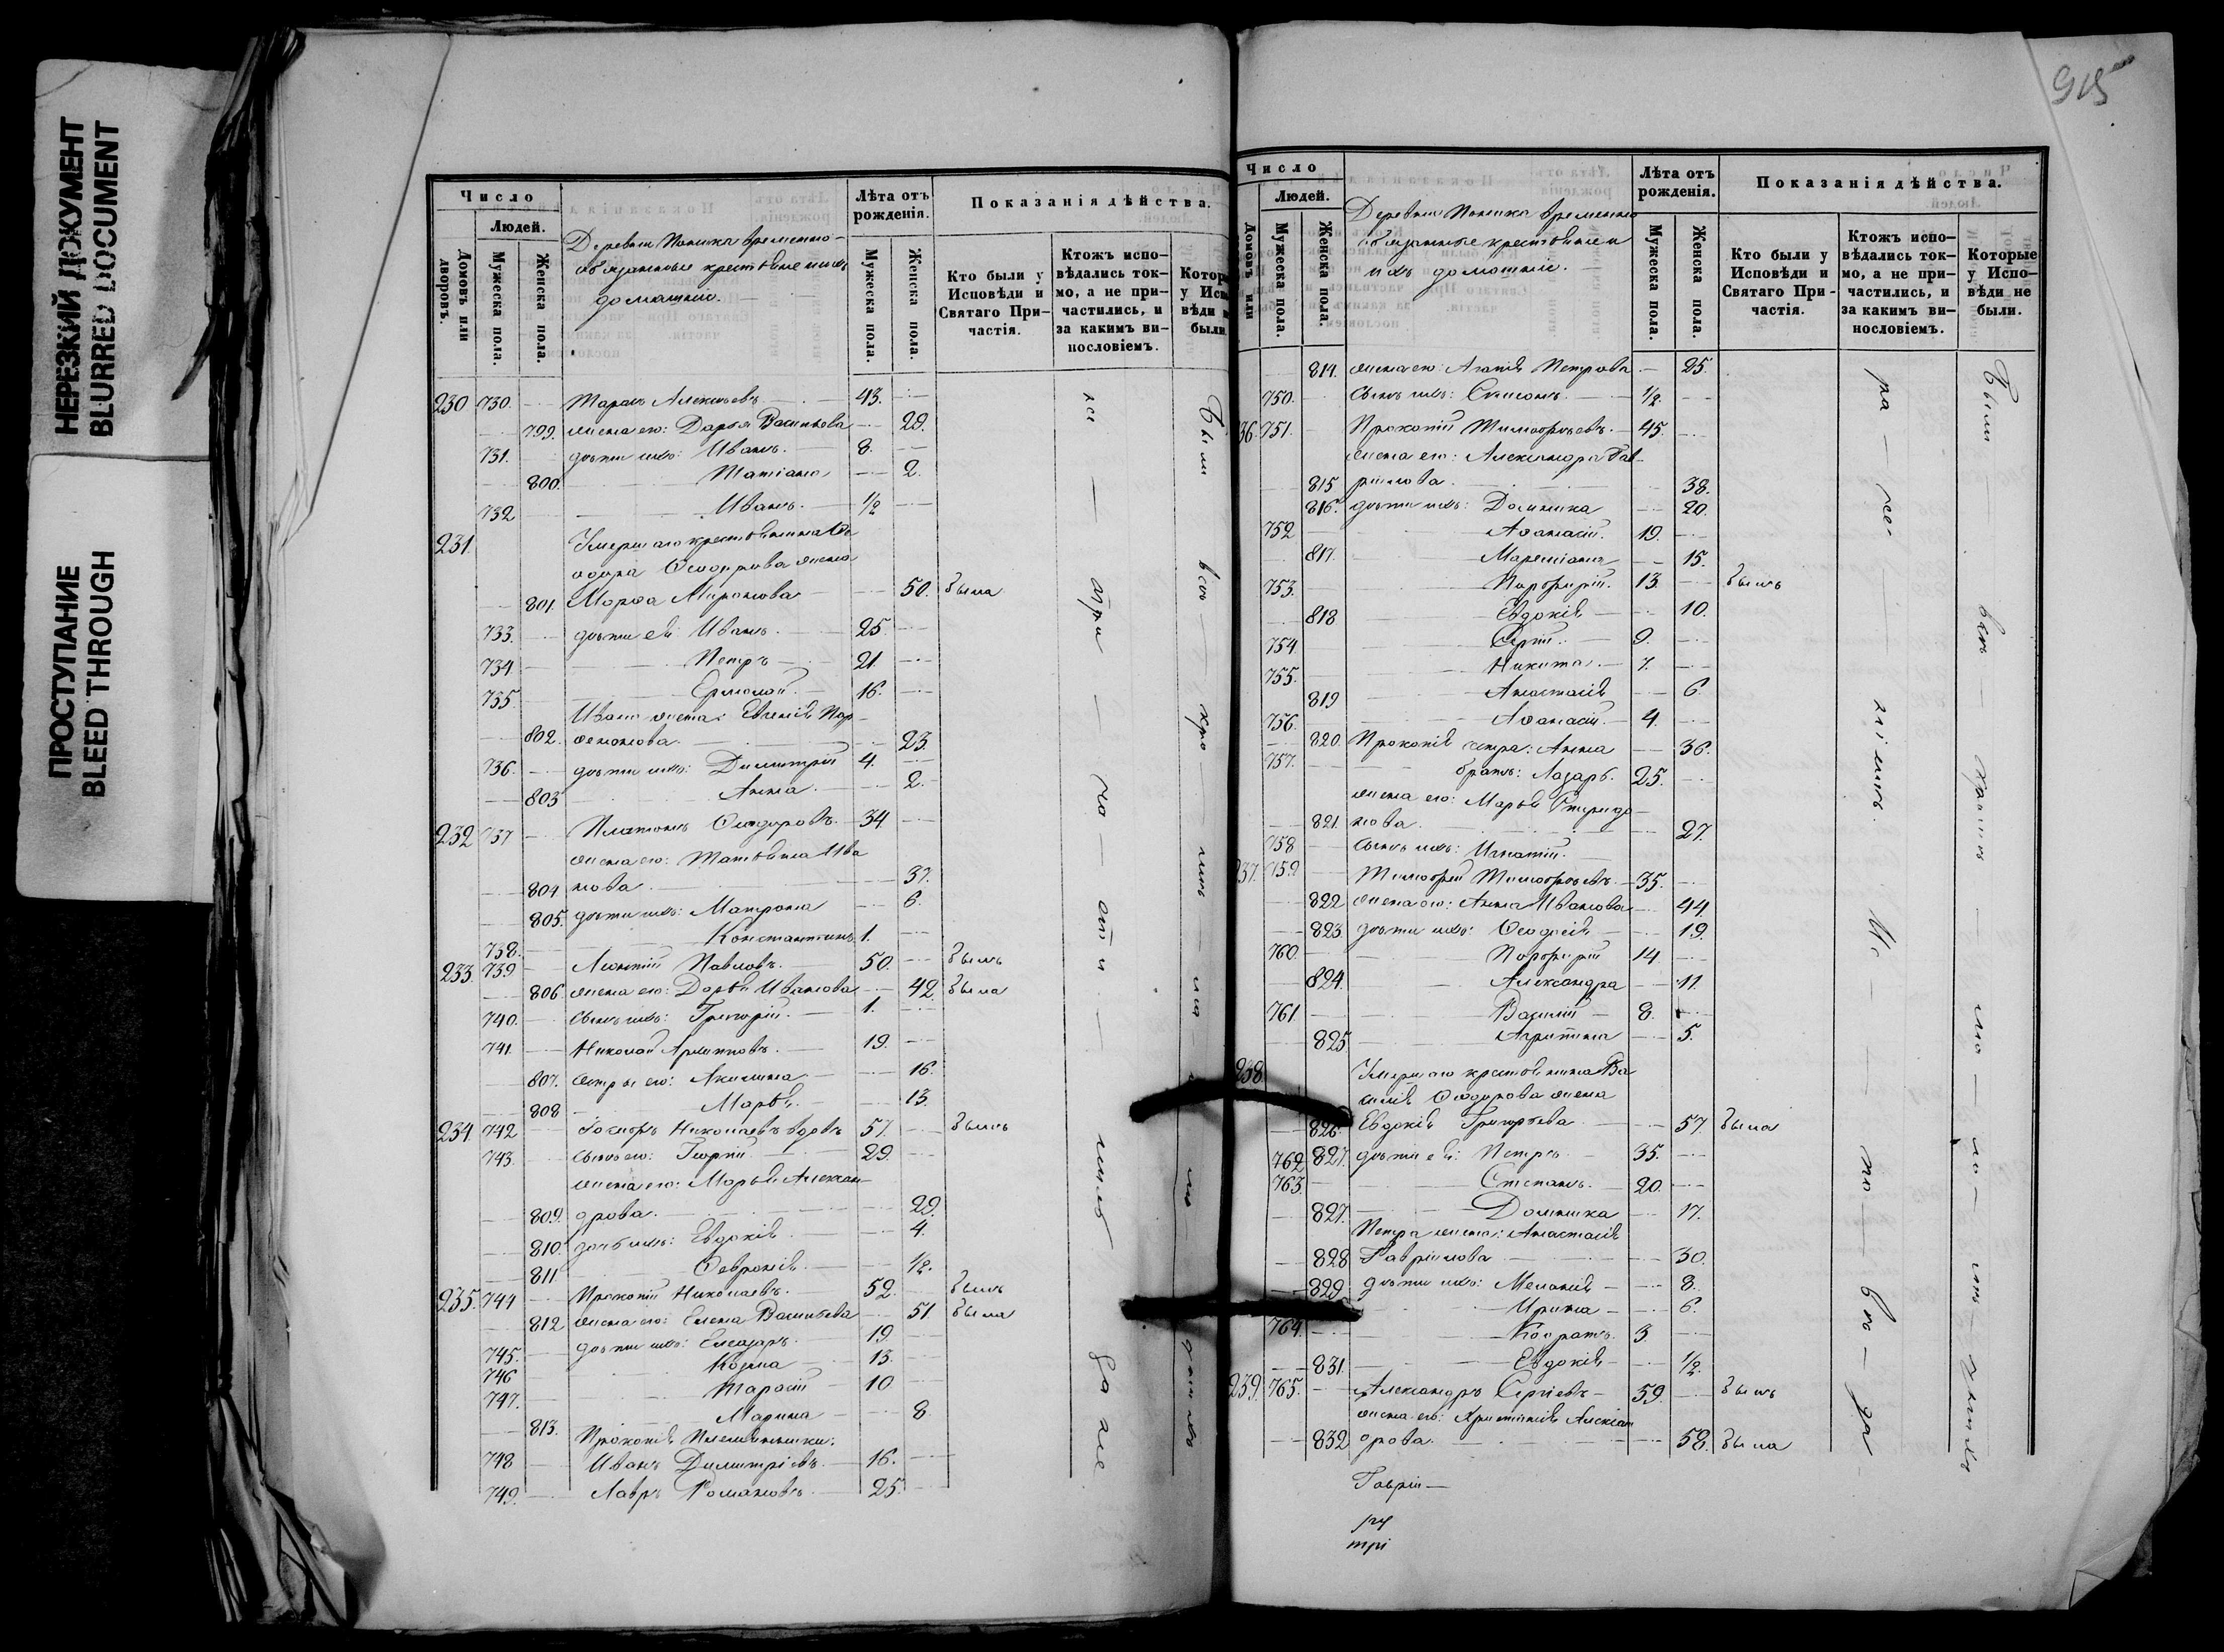 НЕРЕЗКИЙ ДОКУМЕНТ
BLURRED DOCUMENT
ПРОСТУПАНИЕ
BLEED THROUGH
Число
Людей.
Домовъ или дворовъ.
Мужеска пола.
Женска пола.
Деревни временно-
обязанные крестьяне и ихъ
домашніе.
Лѣта отъ рожденія.
Мужеска пола.
Женска пола.
Показанія дѣйства.
Кто были у Исповѣди и Святаго При-частія.
Ктожъ испо-вѣдались ток-мо, а не при-частились, и за какимъ ви-нословіемъ.
Котор
у Исп
вѣди н
были.
230 730. Тарасъ Алексѣевъ 43.
799. жена его: Дарья Васильева 29.
731. дѣти ихъ: Иванъ. 8.
800. Татіана 2.
732 Иванъ. 1/2
231. Умершаго крестьянина Ѳе
одора Ѳеодорова жена
801. Марѳа Миронова 50. была
733. дѣти ея: Иванъ. 25.
734. Петръ 21.
735. Ермолай. 16.
Ивана жена: Евгенія Пар-
802. ѳенова. 23.
736. дѣти ихъ: Димитрій 4.
803 Анна. 2.
232 737 Платонъ Ѳеодоровъ. 34
жена его: Татьяна Ива
804 нова 37.
805. дѣти ихъ: Матрона 6.
738. Константинъ 1.
233. 739 Леонтій Павловъ. 50. былъ
806 жена его: Дарья Иванова 42. была
740. сынъ ихъ: Григорій. 1.
741. Николай 19.
807. сестры его: Акилина 16.
808 Марья. 13.
234. 742 Николаевъ вдовъ 57. былъ
743. сынъ его: Георгій 29.
жена его: Марья Алексан-
809. дрова. 29.
810. дочь ихъ: Евдокія 4.
811 Февронія. 1/2.
235. 744 Прокопій Николаевъ. 52. былъ
812 жена его: Елена Васильева 51. была
745. дѣти ихъ: Елеазаръ. 19.
746 Козма 13.
747. Тарасій 10
813. Марина 8
Прокопія племянники:
748 Иванъ Димитріевъ. 16.
749. Лавръ Романовъ. 25.
915
Число
Людей.
Домовъ или
Мужеска пола.
Женска пола.
Деревни временно
обязанные крестьяне и
ихъ домашніе.
Лѣта отъ рожденія.
Мужеска пола.
Женска пола.
Показанія дѣйства.
Кто были у Исповѣди и Святаго При-частія.
Ктожъ испо-вѣдались ток-мо, а не при-частились, и за какимъ ви-нословіемъ.
Которые у Испо-вѣди не были.
814. жена его: Агапія Петрова 25.
750. сынъ ихъ: Симеонъ. 1/2.
36. 751. Прокопій Тимоѳеевъ. 45.
жена его: Александра Гав-
815 рилова. 38.
816. дѣти ихъ: Домника 20.
752 Аѳанасій. 19.
817. 15.
753. Порфирій. 13. былъ
818 Евдокія 10.
754. Сергій. 9.
755. Никита. 7.
819 Анастасія 6.
756. Аѳанасій. 4.
820. Прокопія сестра: Анна 36.
757. братъ: Лазарь. 25.
жена его: Марья Спиридо-
821. нова. 27.
758 сынъ ихъ: Игнатій.
37. 759 Тимоѳей Тимоѳеевъ. 35.
822 жена его: Анна Иванова 44
823. дѣти ихъ: Ѳеодосія 19.
760. Порфирій 14
824. Александра 11.
761. Василій 8.
825. Агрипина 5.
238. Умершаго крестьянина Ва
силія Ѳеодорова жена
826. Евдокія Григорьева 57. была
762. 827. дѣти ея: Петръ. 35.
763. Степанъ. 20.
827. Домника 17.
Петра жена: Анастасія
828 Гаврилова 30.
829. дѣти ихъ: Меланія 8.
Ирина 6.
764. Кодратъ. 3.
831. Евдокія 1/2.
239. 765. Александръ Сергіевъ 59. былъ
жена его: Христинія Алексан
832 дрова. 58. была
Гавріи—